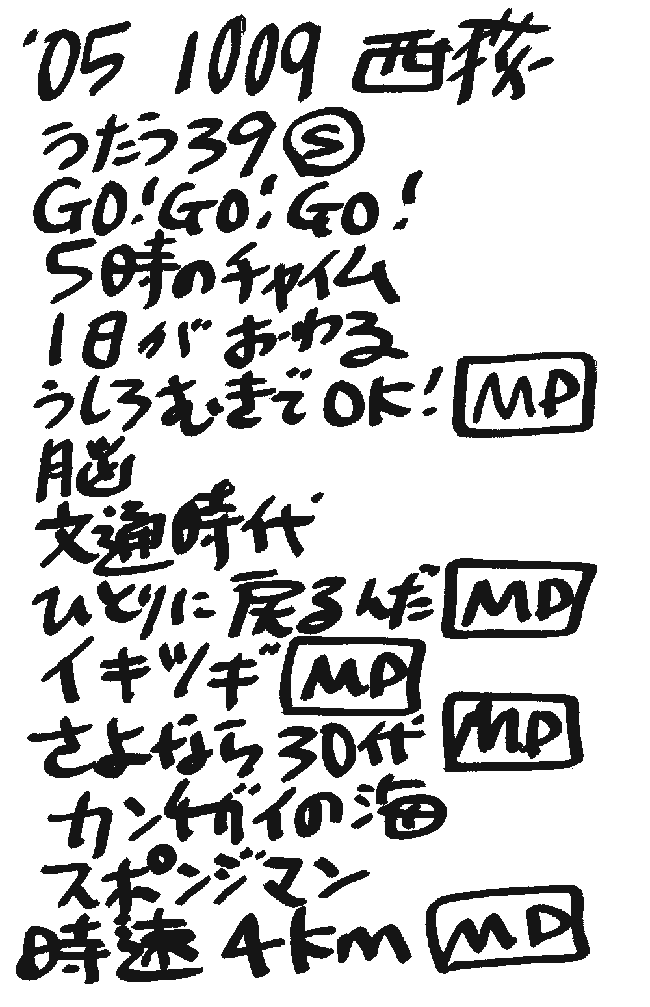 '05 1009 西荻
うたう39Ⓢ
GO!GO!GO!
5時のチャイム
1日がおわる
うしろむきでOK! MD
脳
文通時代
ひとりに戻るんだ MD
イキツギ MD
さよなら30代 MD
カンチガイの海
スポンジマン
時速4km MD